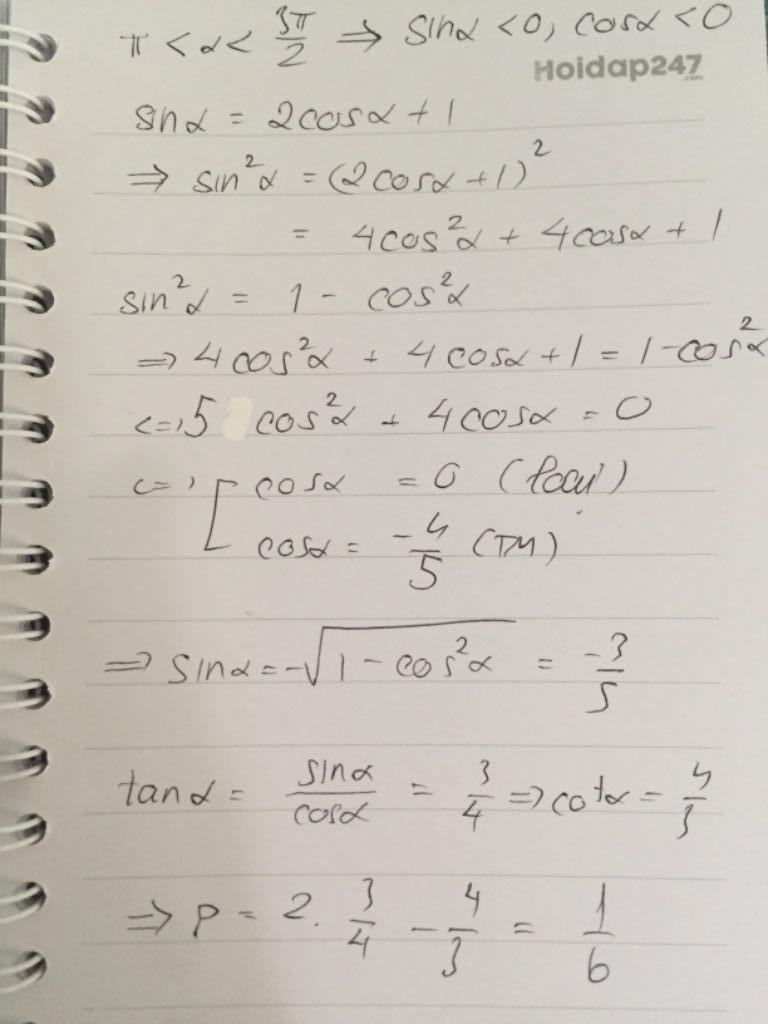 π < α < 3π/2 ⇒ sinα < 0, cosα < 0
Hoidap247.com
sinα = 2cosα + 1
⇒ sin²α = (2cosα + 1)²
= 4cos²α + 4cosα + 1
sin²α = 1 - cos²α
⇒ 4cos²α + 4cosα + 1 = 1 - cos²α
<=> 5 cos²α + 4cosα = 0
<=> [ cosα = 0 (loại)
cosα = -4/5 (TM)
⇒ sinα = -√(1 - cos²α) = -3/5
tanα = sinα/cosα = 3/4 ⇒ cotα = 4/3
⇒ P = 2. 3/4 - 4/3 = 1/6